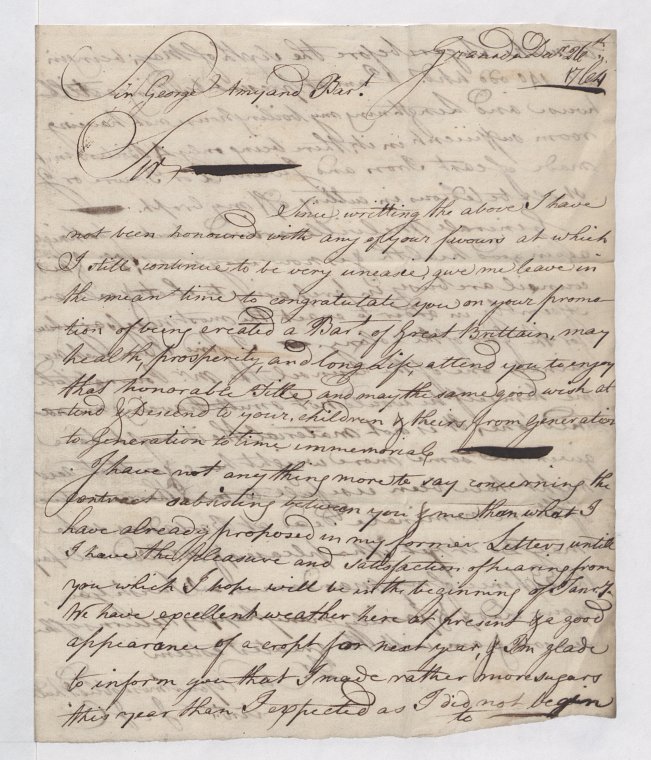 Granada Decr. 26th
1764
Sir George Amyand Bart.
Sir
Since writting the above I have
not been honoured with any of your favours at which
I still continue to be very uneasie, give me leave in
the mean time to congratulate you on your promo-
tion of being created a Bart. of Great Brittain, may
health, prosperity, and long Life attend you to enjoy
that honorable Title, and may the same good wish at
tend & Descend to your children & theirs from Generation
to Generation to time immemorial
I have not any thing more to say concerning the
Contract subsisting between you & me than what I
have already proposed in my former Letters untill
I have the pleasure and Satisfaction of hearing from
you which I hope will be in the beginning of Jany.
We have excellent weather here at present & a good
appearance of a cropt for next year, & I'm glade
to inform you that I made rather more sugars
this year than I expected as I did not begin
to